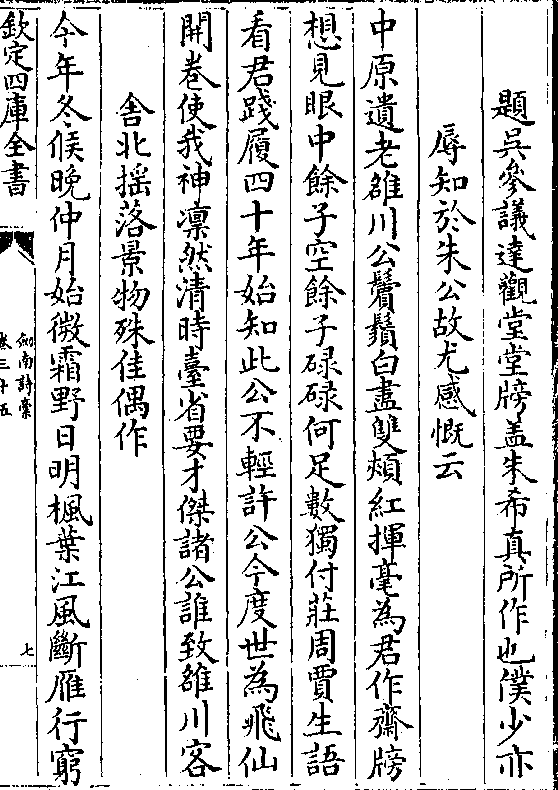 題吳參議達觀堂堂牓盖朱希真所作也僕少亦
辱知於朱公故尤感慨云
中原遺老雒川公鬢鬚白盡雙頰紅揮毫為君作齋牓
想見眼中餘子空餘子碌碌何足數獨付莊周賈生語
看君踐履四十年始知此公不輕許公今度世為飛仙
開卷使我神凛然清時臺省要才傑諸公誰致雒川客
舎北揺落景物殊佳偶作
今年冬候晩仲月始微霜野日明楓葉江風斷雁行窮
欽定四庫全書
劍南詩槀
卷三十五
七